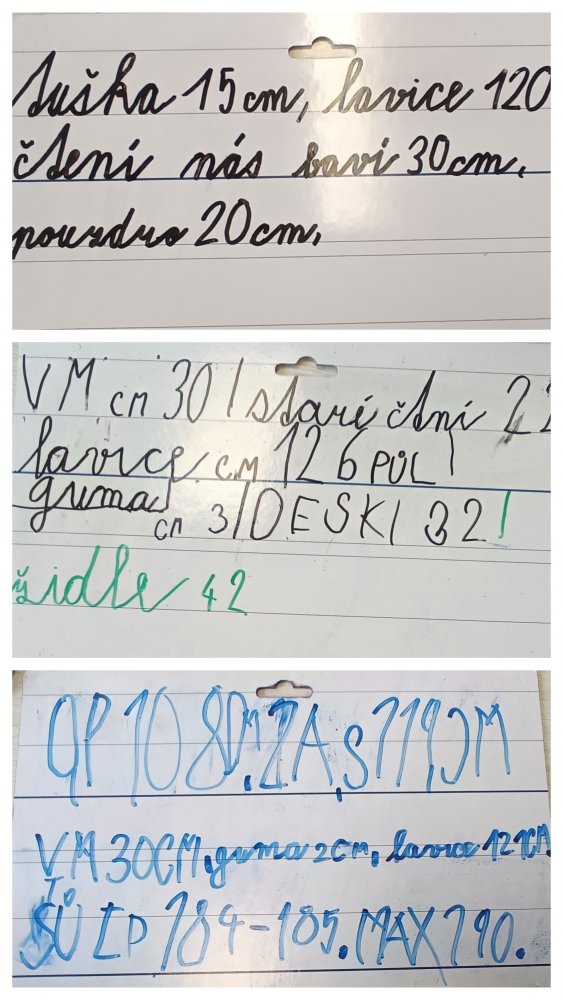 tuška 15cm, lavice 120
čtení nás baví 30cm.
pouzdro 20cm,
VM cm 30 | staré čtní 22
lavice cm 126 PŮL |
guma cm 3 | DESKI 32 |
židle 42
VM 30CM, guma 2cm, lavice 121CM
184-185. MAX 190.